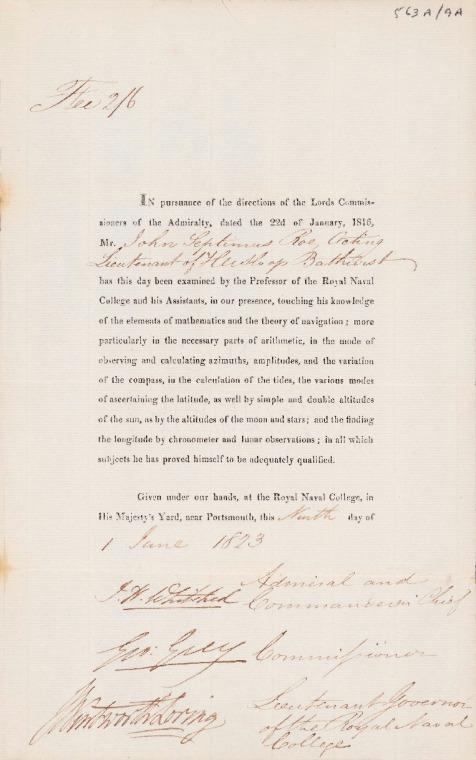 563A/9A
Fee 2/6
IN pursuance of the directions of the Lords Commis-
sioners of the Admiralty, dated the 22d of January, 1816,
Mr. John Septimus Roe, Acting
Lieutenant of H M Sloop Bathurst
has this day been examined by the Professor of the Royal Naval
College and his Assistants, in our presence, touching his knowledge
of the elements of mathematics and the theory of navigation; more
particularly in the necessary parts of arithmetic, in the mode of
observing and calculating azimuths, amplitudes, and the variation
of the compass, in the calculation of the tides, the various modes
of ascertaining the latitude, as well by simple and double altitudes
of the sun, as by the altitudes of the moon and stars; and the finding
the longitude by chronometer and lunar observations; in all which
subjects he has proved himself to be adequately qualified.
Given under our hands, at the Royal Naval College, in
His Majesty's Yard, near Portsmouth, this Ninth day of
June 1823
J. H. Whitshed Admiral and
Commander in Chief
Geo: Grey Commissioner
Wentworth Loring Lieutenant Governor
of the Royal Naval
College